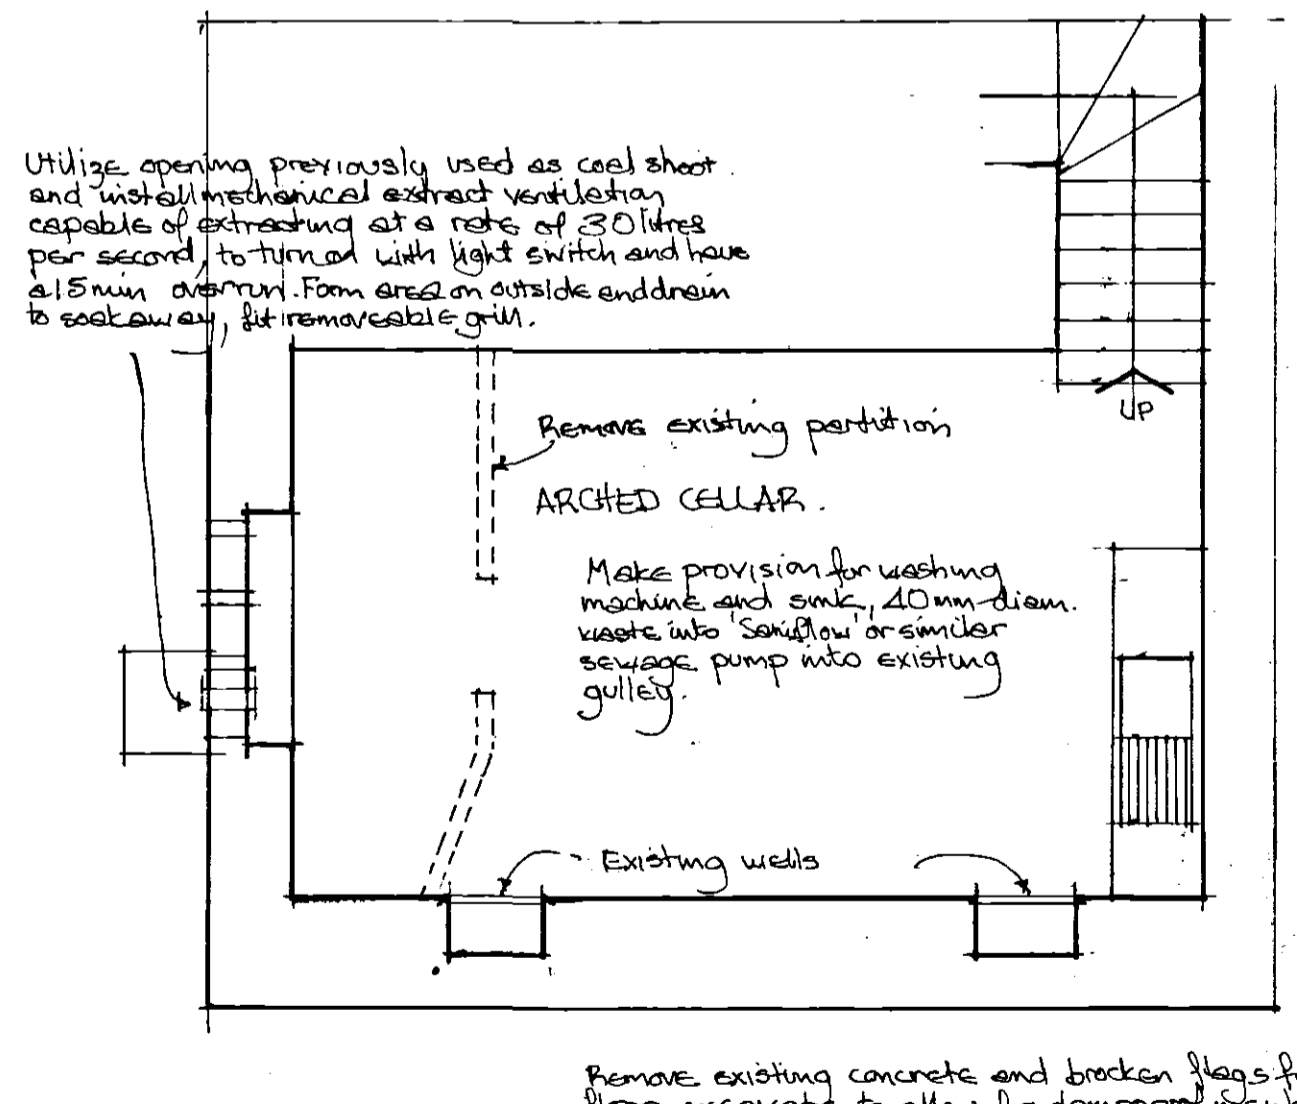 Utilize opening previously used as coal shoot.
and install mechanical extract ventilation
capable of extracting at a rate of 30 litres
per second, to turn on with light switch and have
a 15 min overrun. Form area on outside and drain
to soakaway, fit removeable grill.
UP
Remove existing partition
ARCHED CELLAR.
Make provision for washing
machine and sink, 40mm diam.
waste into 'Saniflow' or similar
sewage pump into existing
gulley.
Existing wells
Remove existing concrete and brocken flags